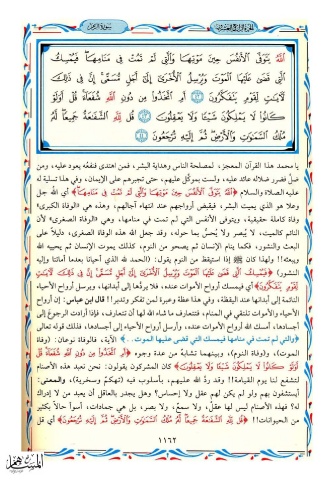 سورة الزمر
اللَّهُ يَتَوَفَّى الْأَنْفُسَ حِينَ مَوْتِهَا وَالَّتِي لَمْ تَمُتْ فِي مَنَامِهَا فَيُمْسِكُ
الَّتِي قَضَى عَلَيْهَا الْمَوْتَ وَيُرْسِلُ الْأُخْرَى إِلَى أَجَلٍ مُسَمًّى إِنَّ فِي ذَلِكَ
لَآيَاتٍ لِقَوْمٍ يَتَفَكَّرُونَ ﴿٤٢﴾ أَمِ اتَّخَذُوا مِنْ دُونِ اللَّهِ شُفَعَاءَ قُلْ أَوَلَوْ
كَانُوا لَا يَمْلِكُونَ شَيْئًا وَلَا يَعْقِلُونَ ﴿٤٣﴾ قُلْ لِلَّهِ الشَّفَاعَةُ جَمِيعًا لَهُ
مُلْكُ السَّمَاوَاتِ وَالْأَرْضِ ثُمَّ إِلَيْهِ تُرْجَعُونَ ﴿٤٤﴾
يا محمد هذا القرآن المعجز، لمصلحة الناس وهداية البشر، فمن اهتدى فنفعه يعود عليه، ومن
ضل فضرر ضلاله عائد عليه، ولست بموكّل عليهم، حتى تجبرهم على الإيمان، وفي هذا تسلية له
عليه الصلاة والسلام ﴿اللَّهُ يَتَوَفَّى الْأَنْفُسَ حِينَ مَوْتِهَا وَالَّتِي لَمْ تَمُتْ فِي مَنَامِهَا﴾ أي الله جل
وعلا هو الذي يميت البشر، فيقبض أرواحهم عند انتهاء آجالهم، وهذه هي «الوفاة الكبرى»
وفاة كاملة حقيقية، ويتوفى الأنفس التي لم تمت في منامها، وهي «الوفاة الصغرى» لأن
النائم كالميت، لا يُبصر ولا يُحسّ بما حوله، وقد جعل الله هذه الوفاة الصغرى، دليلاً على
البعث والنشور، فكما ينام الإنسان ثم يصحو من النوم، كذلك يموت الإنسان ثم يحييه الله
ويبعثه!! ولهذا كان ﷺ إذا استيقظ من النوم يقول: (الحمد لله الذي أحيانا بعدما أماتنا وإليه
النشور) ﴿فَيُمْسِكُ الَّتِي قَضَى عَلَيْهَا الْمَوْتَ وَيُرْسِلُ الْأُخْرَى إِلَى أَجَلٍ مُسَمًّى إِنَّ فِي ذَلِكَ لَآيَاتٍ لِقَوْمٍ
يَتَفَكَّرُونَ﴾ أي فيمسك أرواح الأموات عنده، فلا يردّها إلى أبدانها، ويرسل أرواح الأحياء
النائمة إلى أبدانها عند اليقظة، وفي هذا عظة وعبرة لمن تفكر وتدبر!! قال ابن عباس: إن أرواح
الأحياء والأموات تلتقي في المنام، فتتعارف ما شاء الله لها أن تتعارف، فإذا أرادت الرجوع إلى
أجسادها، أمسك الله أرواح الأموات عنده، وأرسل أرواح الأحياء إلى أجسادها، فذلك قوله تعالى
﴿والتي لم تمت في منامها فيمسك التي قضى عليها الموت..﴾ الآية، فالوفاة نوعان: (وفاة
الموت)، و(وفاة النوم)، وبينهما تشابهٌ من عدة وجوه ﴿أَمِ اتَّخَذُوا مِنْ دُونِ اللَّهِ شُفَعَاءَ قُلْ
أَوَلَوْ كَانُوا لَا يَمْلِكُونَ شَيْئًا وَلَا يَعْقِلُونَ﴾ كان المشركون يقولون: نحن نعبد هذه الأصنام
لتشفع لنا يوم القيامة!! وقد ردّ الله عليهم، بأسلوب فيه (تهكم وسخرية)، والمعنى:
أيستشفعون بهم ولو لم يكن لهم عقل ولا إحساس؟ وهل يجدر بالعاقل أن يعبد من لا إدراك
له؟ فهذه الأصنام ليس لها عقلٌ، ولا سمعٌ، ولا بصر، بل هي جمادات، أسوأ حالاً بكثير
من الحيوانات!! ﴿قُلْ لِلَّهِ الشَّفَاعَةُ جَمِيعًا لَهُ مُلْكُ السَّمَاوَاتِ وَالْأَرْضِ ثُمَّ إِلَيْهِ تُرْجَعُونَ﴾ أي قل
١١٦٢